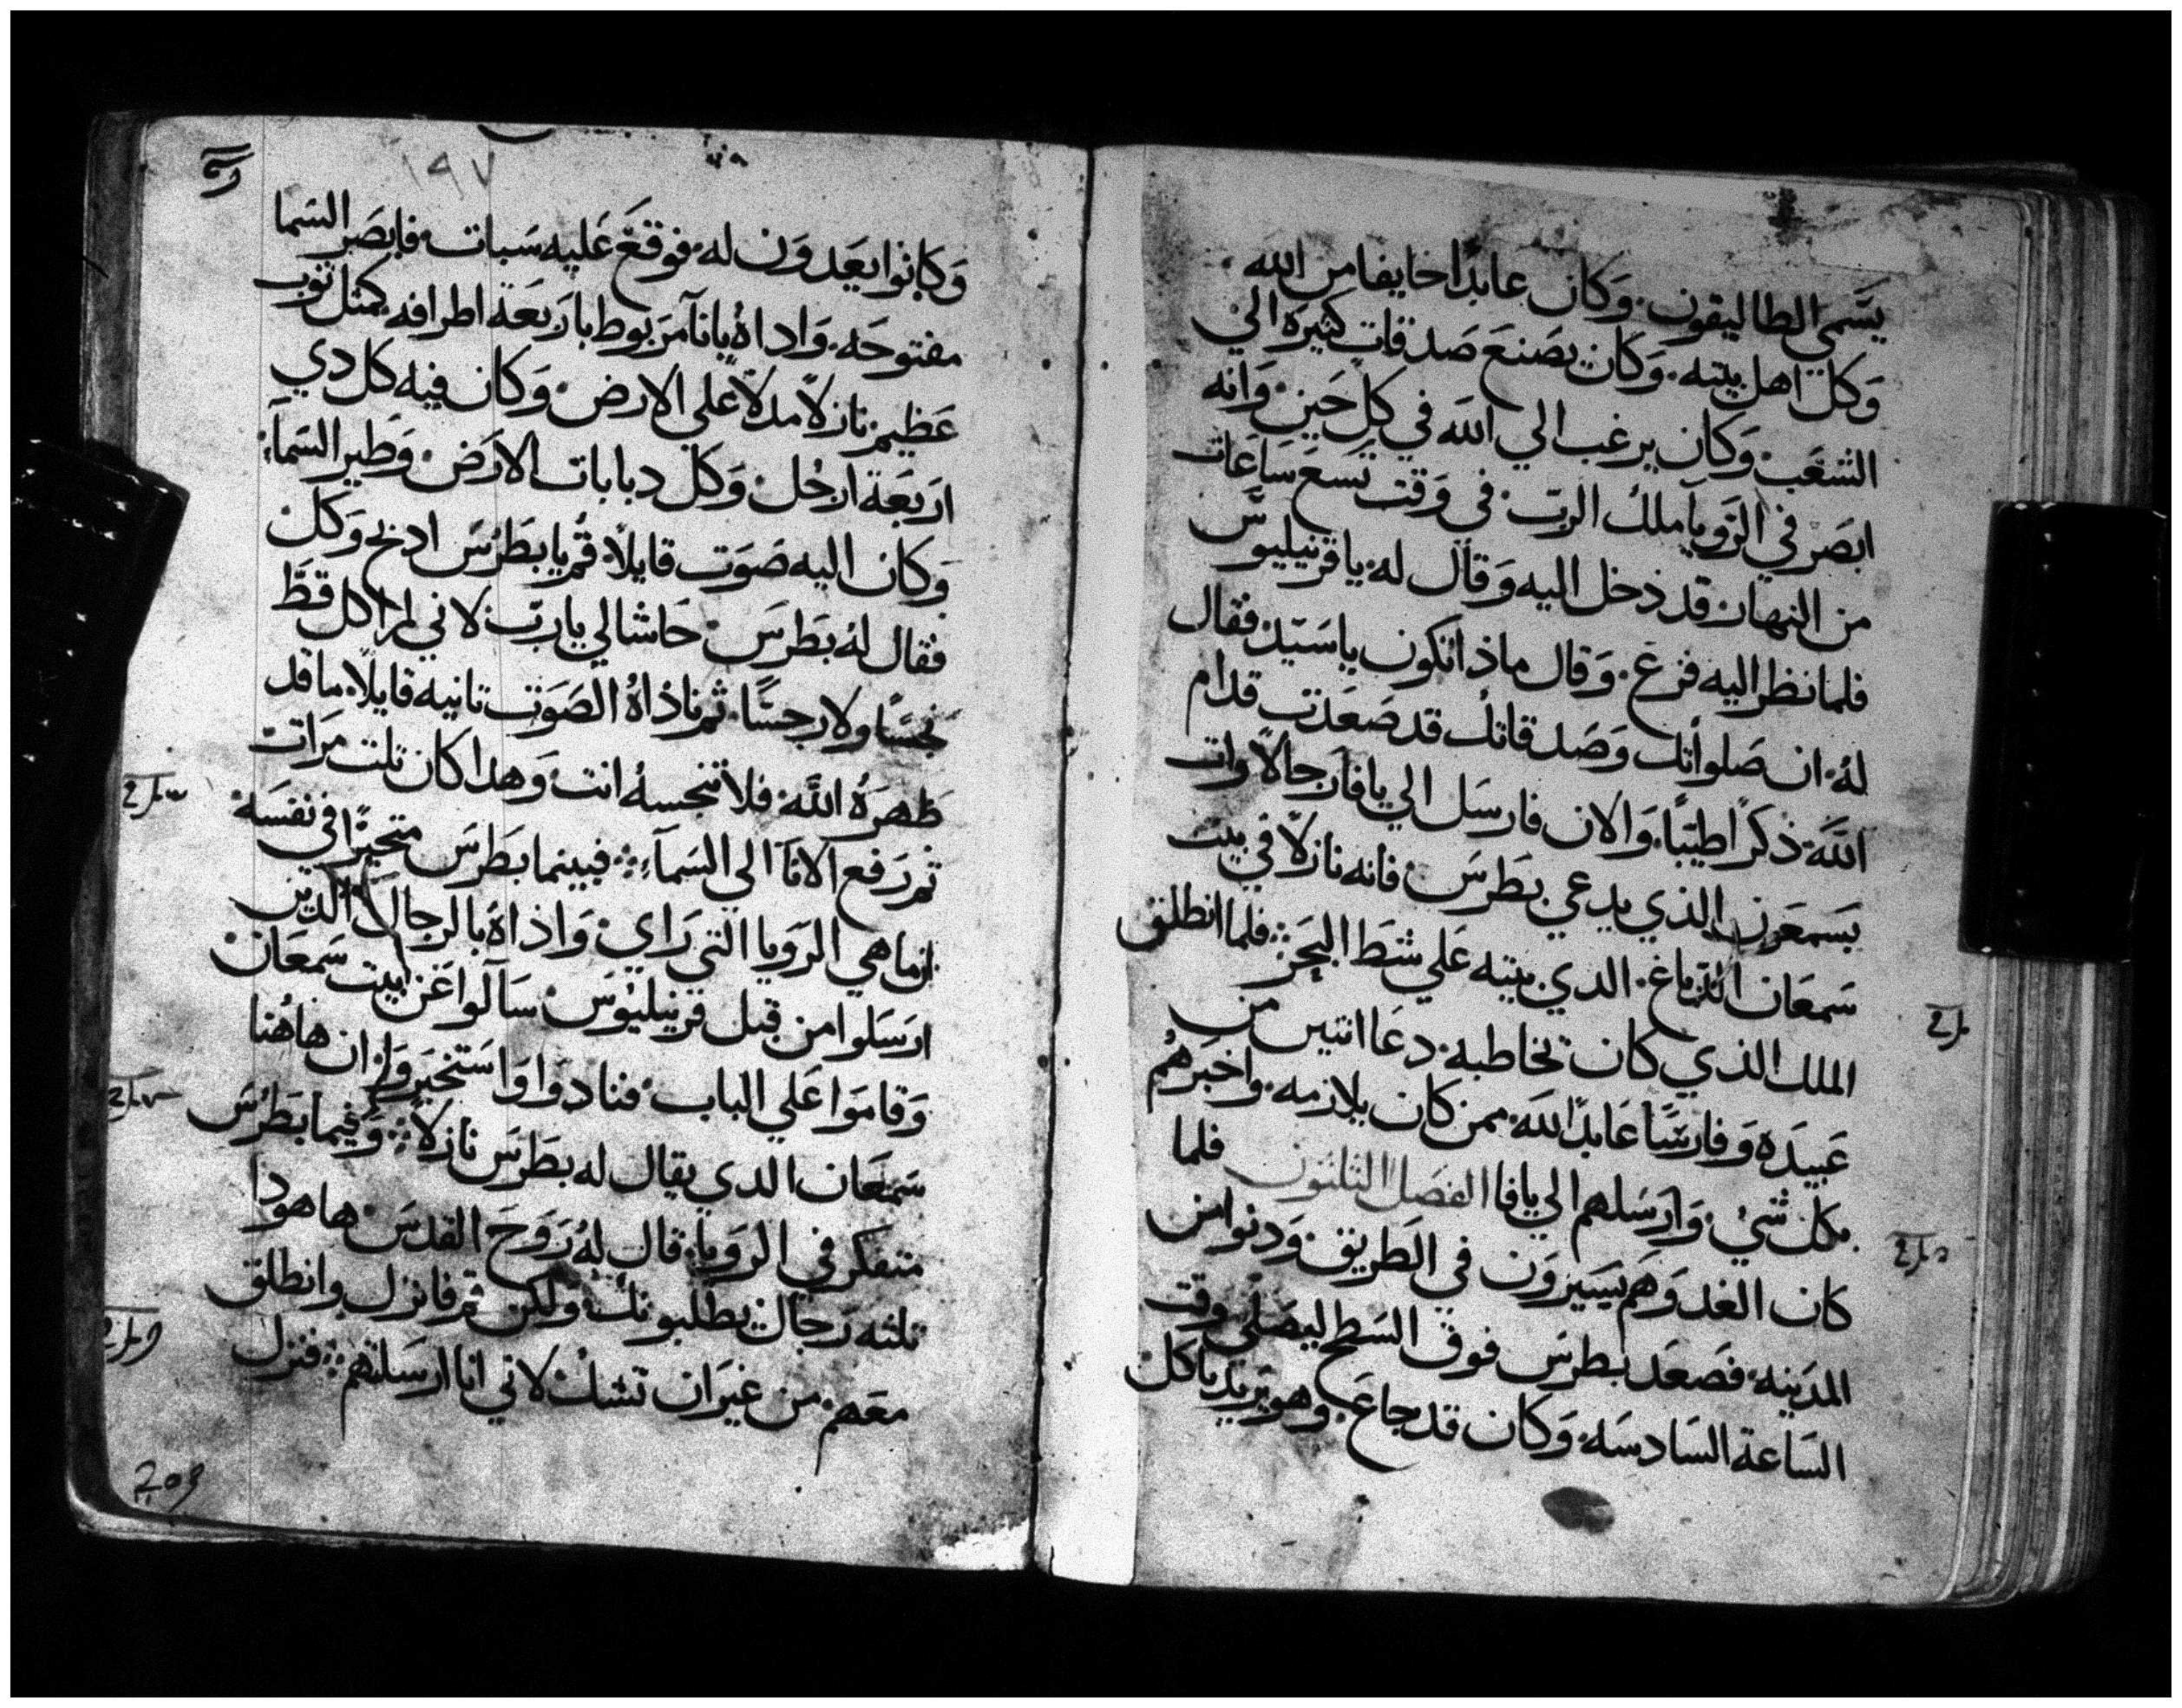 يسَّمي الطاليقون. وَكان عابدًا خايفا من الله
وَكل اهل بيته. وَكان يصَنعَ صَدقات كثيرَه الي
الشعَب. وَكان يرغب الي الله في كل حَين. وَانه
ابصَرَ في الرَويا ملك الربّ. في وَقت تسَعَ سَاعَات
من النهار. قد ذخل اليه وَقال له. يا قرنيليوس
فلما نظر اليه فزع. وَقال ماذا تكون يا سَيّد. فقال
لهُ. ان صَلواتك وَصَدقاتك قد صَعَدت قدام
الله. ذكرًا طيّبًا. وَالان فارسَل الي يافا رَجالاً وات
بسَمعَون الذي يدعي بطرسَ. فانه نازلاً في بيت
سَمعَان الدّباغ. الدي بيته عَلي شط البَحَر. فلما انطلق
الملك الذي كان تخاطبه. دعَا اتنين من
عَبيدَه وَفارسًا عَابدًا لله. ممن كان يلازمه. وَاخبَرهُم
بكل شيُ. وَارسَلهم الي يافا الفصَل الثلثون فلما
كان الغد وَهم يسَيرَون في الطريق. وَدنوا من
المدينه. فصَعَد بطرسَ فوق السَطح ليصَلي وقت
السَاعة السَادسَه. وَكان قد جاعَ. وهو يَريد ياكل
١٩٧
وَكانوا يعَدوَن له. فوقعَ عَليه سَبات. فابصَرَ السَما
مفتوحَه. وَاداهُ بانآ مرَبوط بارَبعَة اطرافه كمثل توب
عَظيم نازلاً مدلاً عَلي الارض. وَكان فيه كل دي
اربَعَة ارجُل. وَكل دبابات الارَض. وَطير السَمآء
وَكان اليه صَوَت قايلاً. قُم يا بطرُسَ ادبح وَكل
فقال لهُ بطرسَ. حَاشا لي يا ربّ. لاني لم اكل قطَّ
نجسًا ولا رجسًا. ثم ناذاهُ الصَوَت تانيه قايلاً. ما قد
طهرَهُ الله. فلا تنجسهُ انت. وَهدا كان تلت مرَات
ثم رَفع الانآ الي السَمآء. فبينما بطرَسَ متحيرًا في نفسَه
ان ما هي الرَويا التي رَاي. وَاذاهُ بالرجال الدين
ارسَلوا من قبل قرنيليُوسَ. سَآلوا عَن بيت سَمعَان
وَقامَوا عَلي الباب. فنادَوا وَاستخبَروَا. ان هاهُنا
سَمعَان الدي يقال له بطرَسَ نازلاً. وَفيما بطرُسَ
متفكر في الروَيا. قال لهُ رَوحَ القدسَ. ها هودا
تلثه رَجال يطلبونك. ولكن قم فانزل وانطلق
معَهم. من غيَر ان تشك. لاني انا ارسَلتهم. فنزل
203